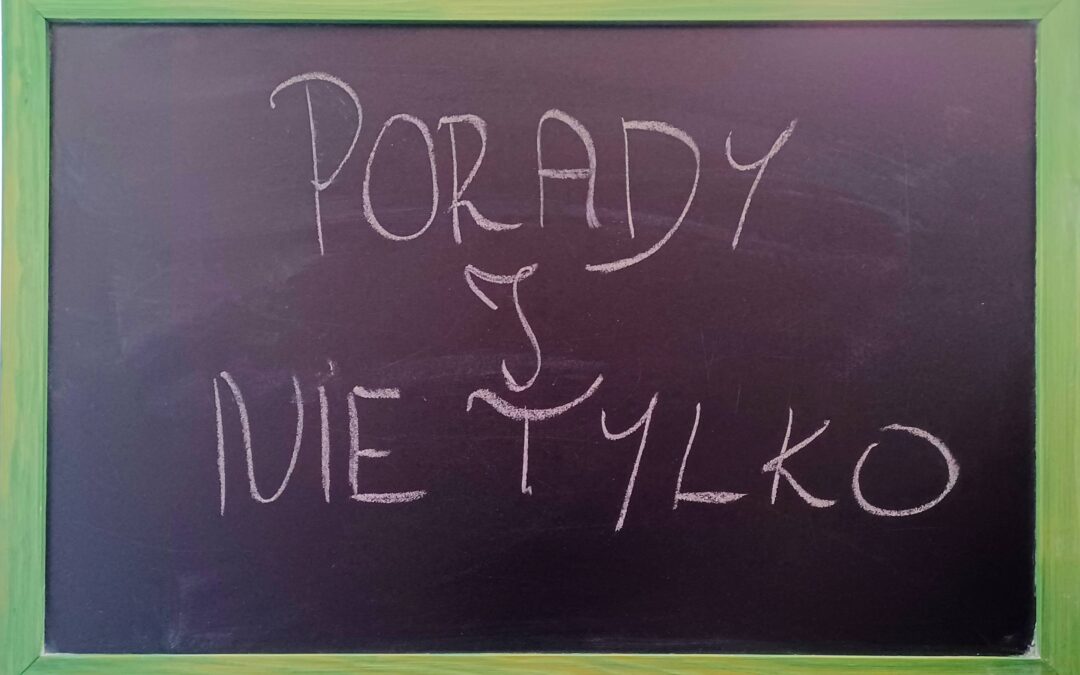 PORADY
I
NIE TYLKO